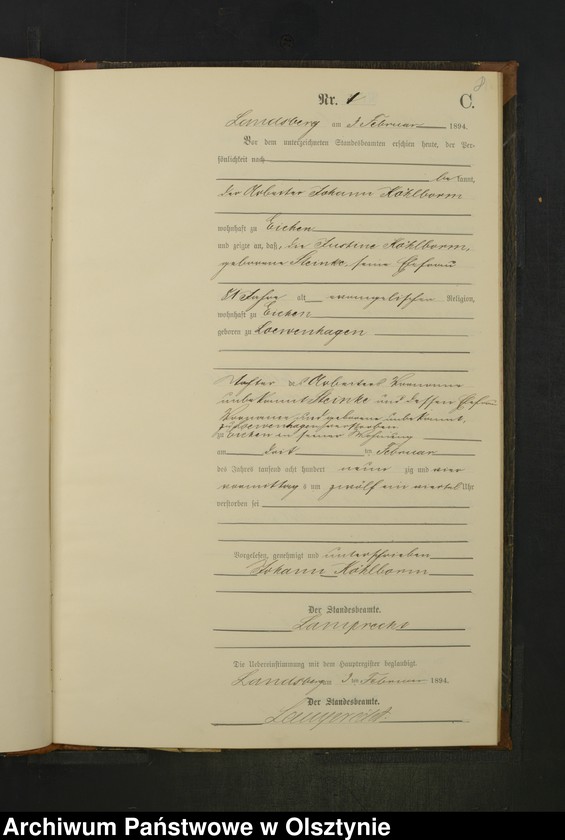 8
Nr. 1 C.
Landsberg am 3. Februar 1894.
Vor dem unterzeichneten Standesbeamten erschien heute, der Per-
sönlichkeit nach
be kannt,
der Arbeiter Johann Köhlborm
wohnhaft zu Eichen
und zeigte an, daß, die Justine Köhlborm,
geborene Steinke, seine Ehefrau
81 Jahre alt evangelischer Religion,
wohnhaft zu Eichen
geboren zu Loewenhagen
Tochter des Arbeiters Vorname
unbekannt Steinke und dessen Ehefrau
Vorname und geborene unbekannt,
zu Loewenhagen verstorben
zu Eichen in seiner Wohnung
am Februar
des Jahres tausend acht hundert neun zig und vier
vormittag s um zwölf ein viertel Uhr
verstorben sei
Vorgelesen, genehmigt und unterschrieben
Johann Köhlborm
Der Standesbeamte.
Lamprecht
Die Uebereinstimmung mit dem Hauptregister beglaubigt.
Landsberg, 3. Februar 1894.
Der Standesbeamte.
Lamprecht
Archiwum Państwowe w Olsztynie